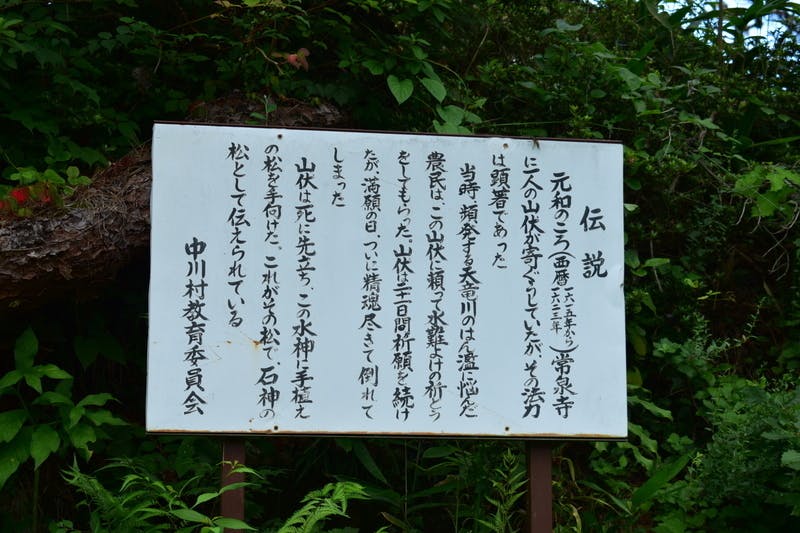 伝説
元和のころ(西暦一六一五年から一六二三年)常泉寺
に一人の山伏が寄ぐうしていたが、その法力
は顕著であった
当時、頻発する天竜川のはん濫に悩んだ
農民は、この山伏に頼って水難よけの祈とう
をしてもらった。山伏は二十一日間祈願を続け
たが、満願の日、ついに精魂尽きて倒れて
しまった
山伏は死に先立ち、この水神に手植え
の松を手向けた。これがこの松で、石神の
松として伝えられている
中川村教育委員会